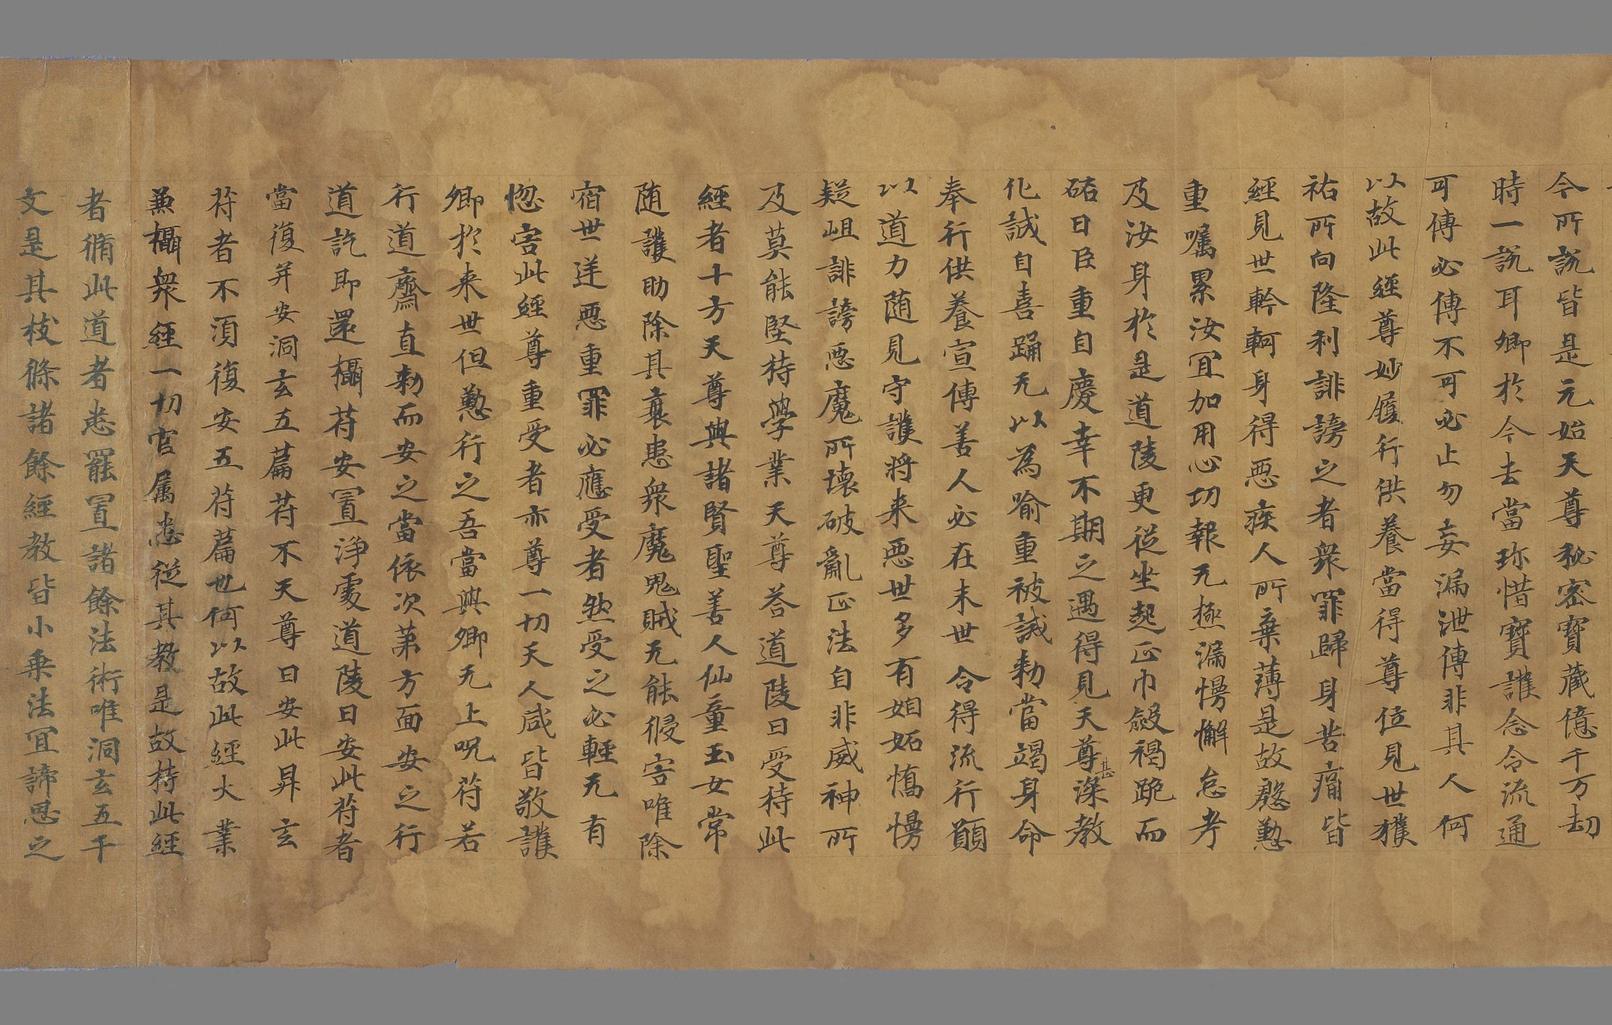 今所說皆是元始天尊秘密寶藏億千万劫
時一說耳卿於今去當珎惜寶護念令流通
可傳必傳不可必止勿妄漏泄傳非其人何
以故此經尊妙履行供養當得尊位見世獲
祐所向隆利誹謗之者衆罪歸身苦痛皆
經見世軡軻身得惡疾人所棄薄是故慇懃
重囑累汝冝加用心切報无極漏慢懈怠考
及汝身於是道陵更從坐起正巾斂褐跪而
硞日臣重自慶幸不期之遇得見天尊深甚教
化誠自喜踊无以為喻重被誡勑當竭身命
奉行供養宣傳善人必在末世令得流行願
以道力随見守護將来惡世多有姻妬憍慢
疑岨誹謗惡魔所壞破亂正法自非威神所
及莫能堅持學業天尊荅道陵曰受持此
經者十方天尊與諸賢聖善人仙童玉女常
随護助除其衰患衆魔鬼賊无能侵害唯除
宿世送惡重罪必應受者然受之必輕无有
惚害此經尊重受者亦尊一切天人咸皆敬護
卿於来世但懃行之吾當與卿无上呪苻若
行道齋直勑而安之當依次苐方面安之行
道訖即還攝苻安置浄處道陵曰安此苻者
當復并安洞玄五篇苻不天尊曰安此昇玄
苻者不湏復安五苻篇也何以故此經大業
兼攝衆經一切官属悉從其教是故持此經
者脩此道者悉罷置諸餘法術唯洞玄五千
文是其枝條諸餘經教皆小乗法冝諦思之